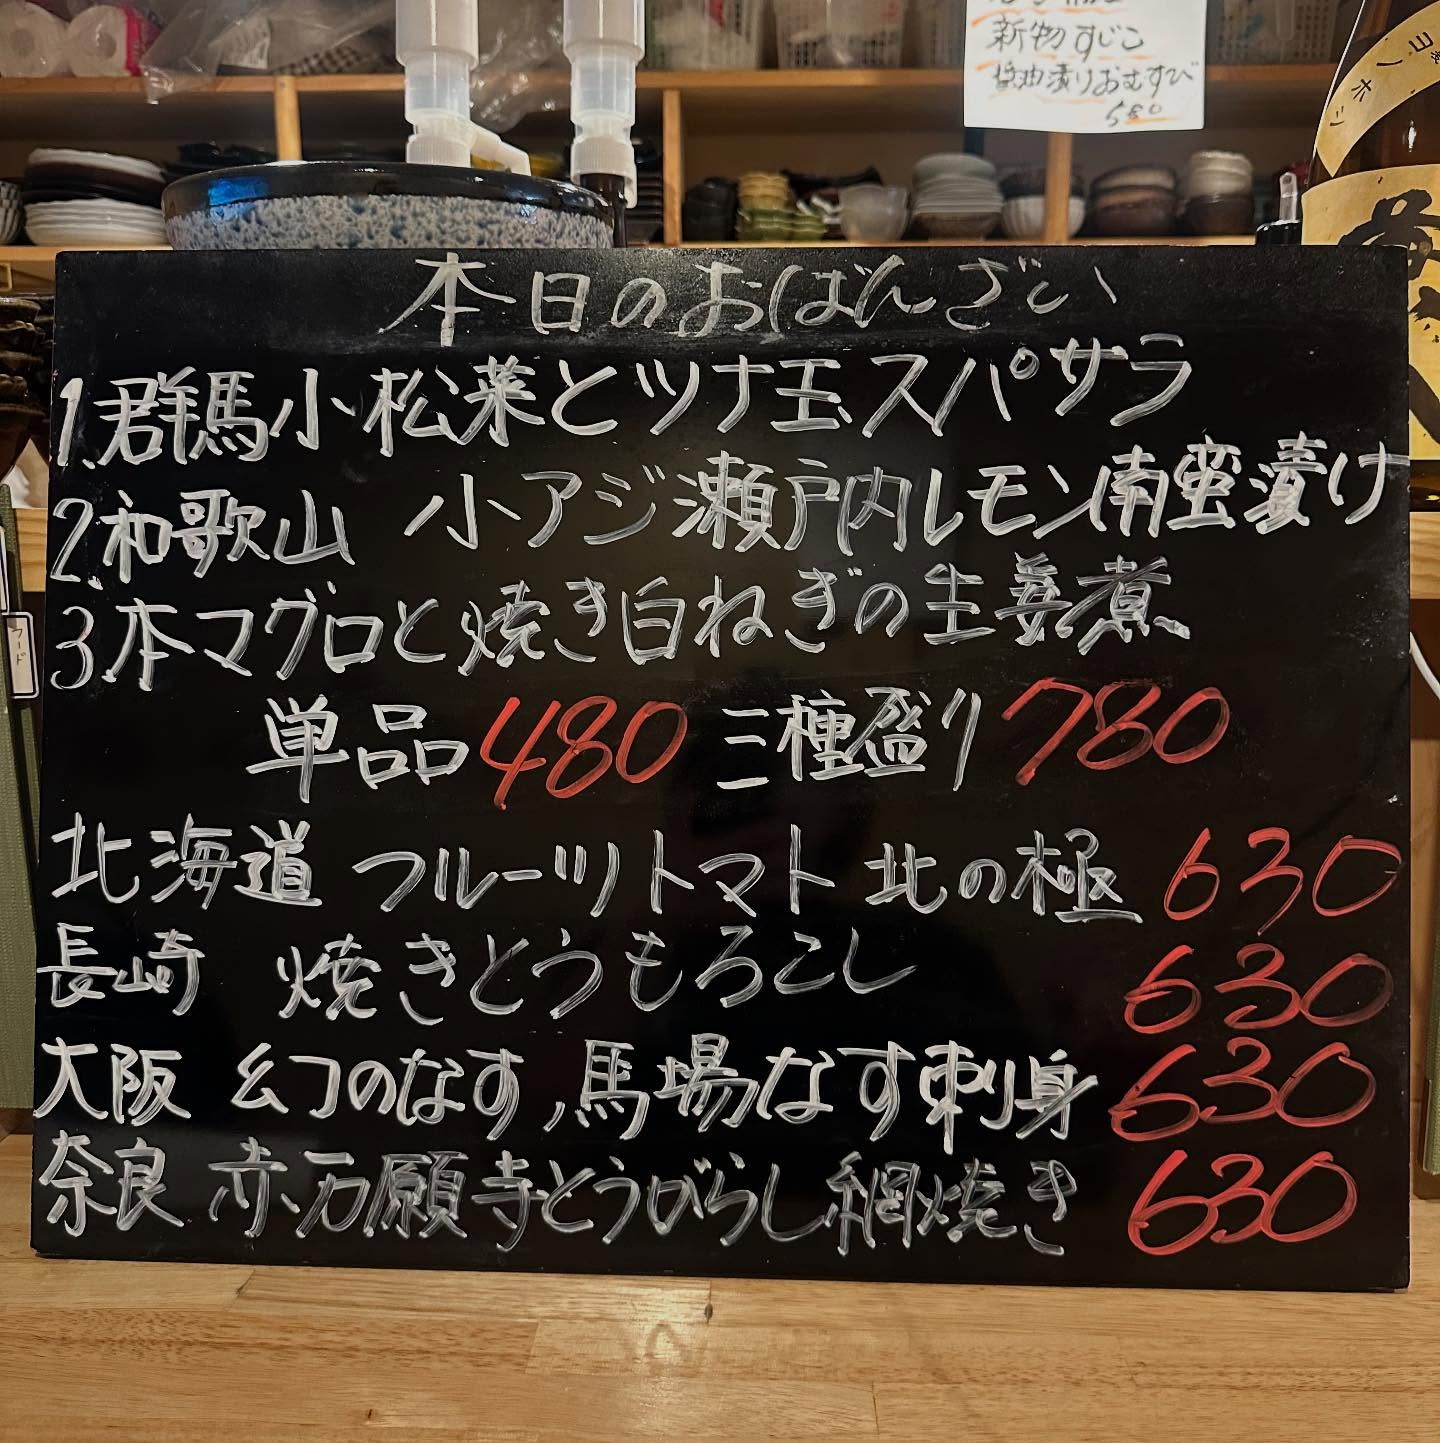 新物すじこ
醤油漬りおむすび
580
ヨノホシ
フード
本日のおばんざい
1.群馬小松菜とツナ玉スパサラ
2.和歌山 小アジ瀬戸内レモン南蛮漬け
3.本マグロと焼き白ねぎの生姜煮
単品480 三種盛り780
北海道 フルーツトマト 北の極 630
長崎 焼きとうもろこし 630
大阪 幻のなす、馬場なす刺身 630
奈良 赤万願寺とうがらし網焼き 630